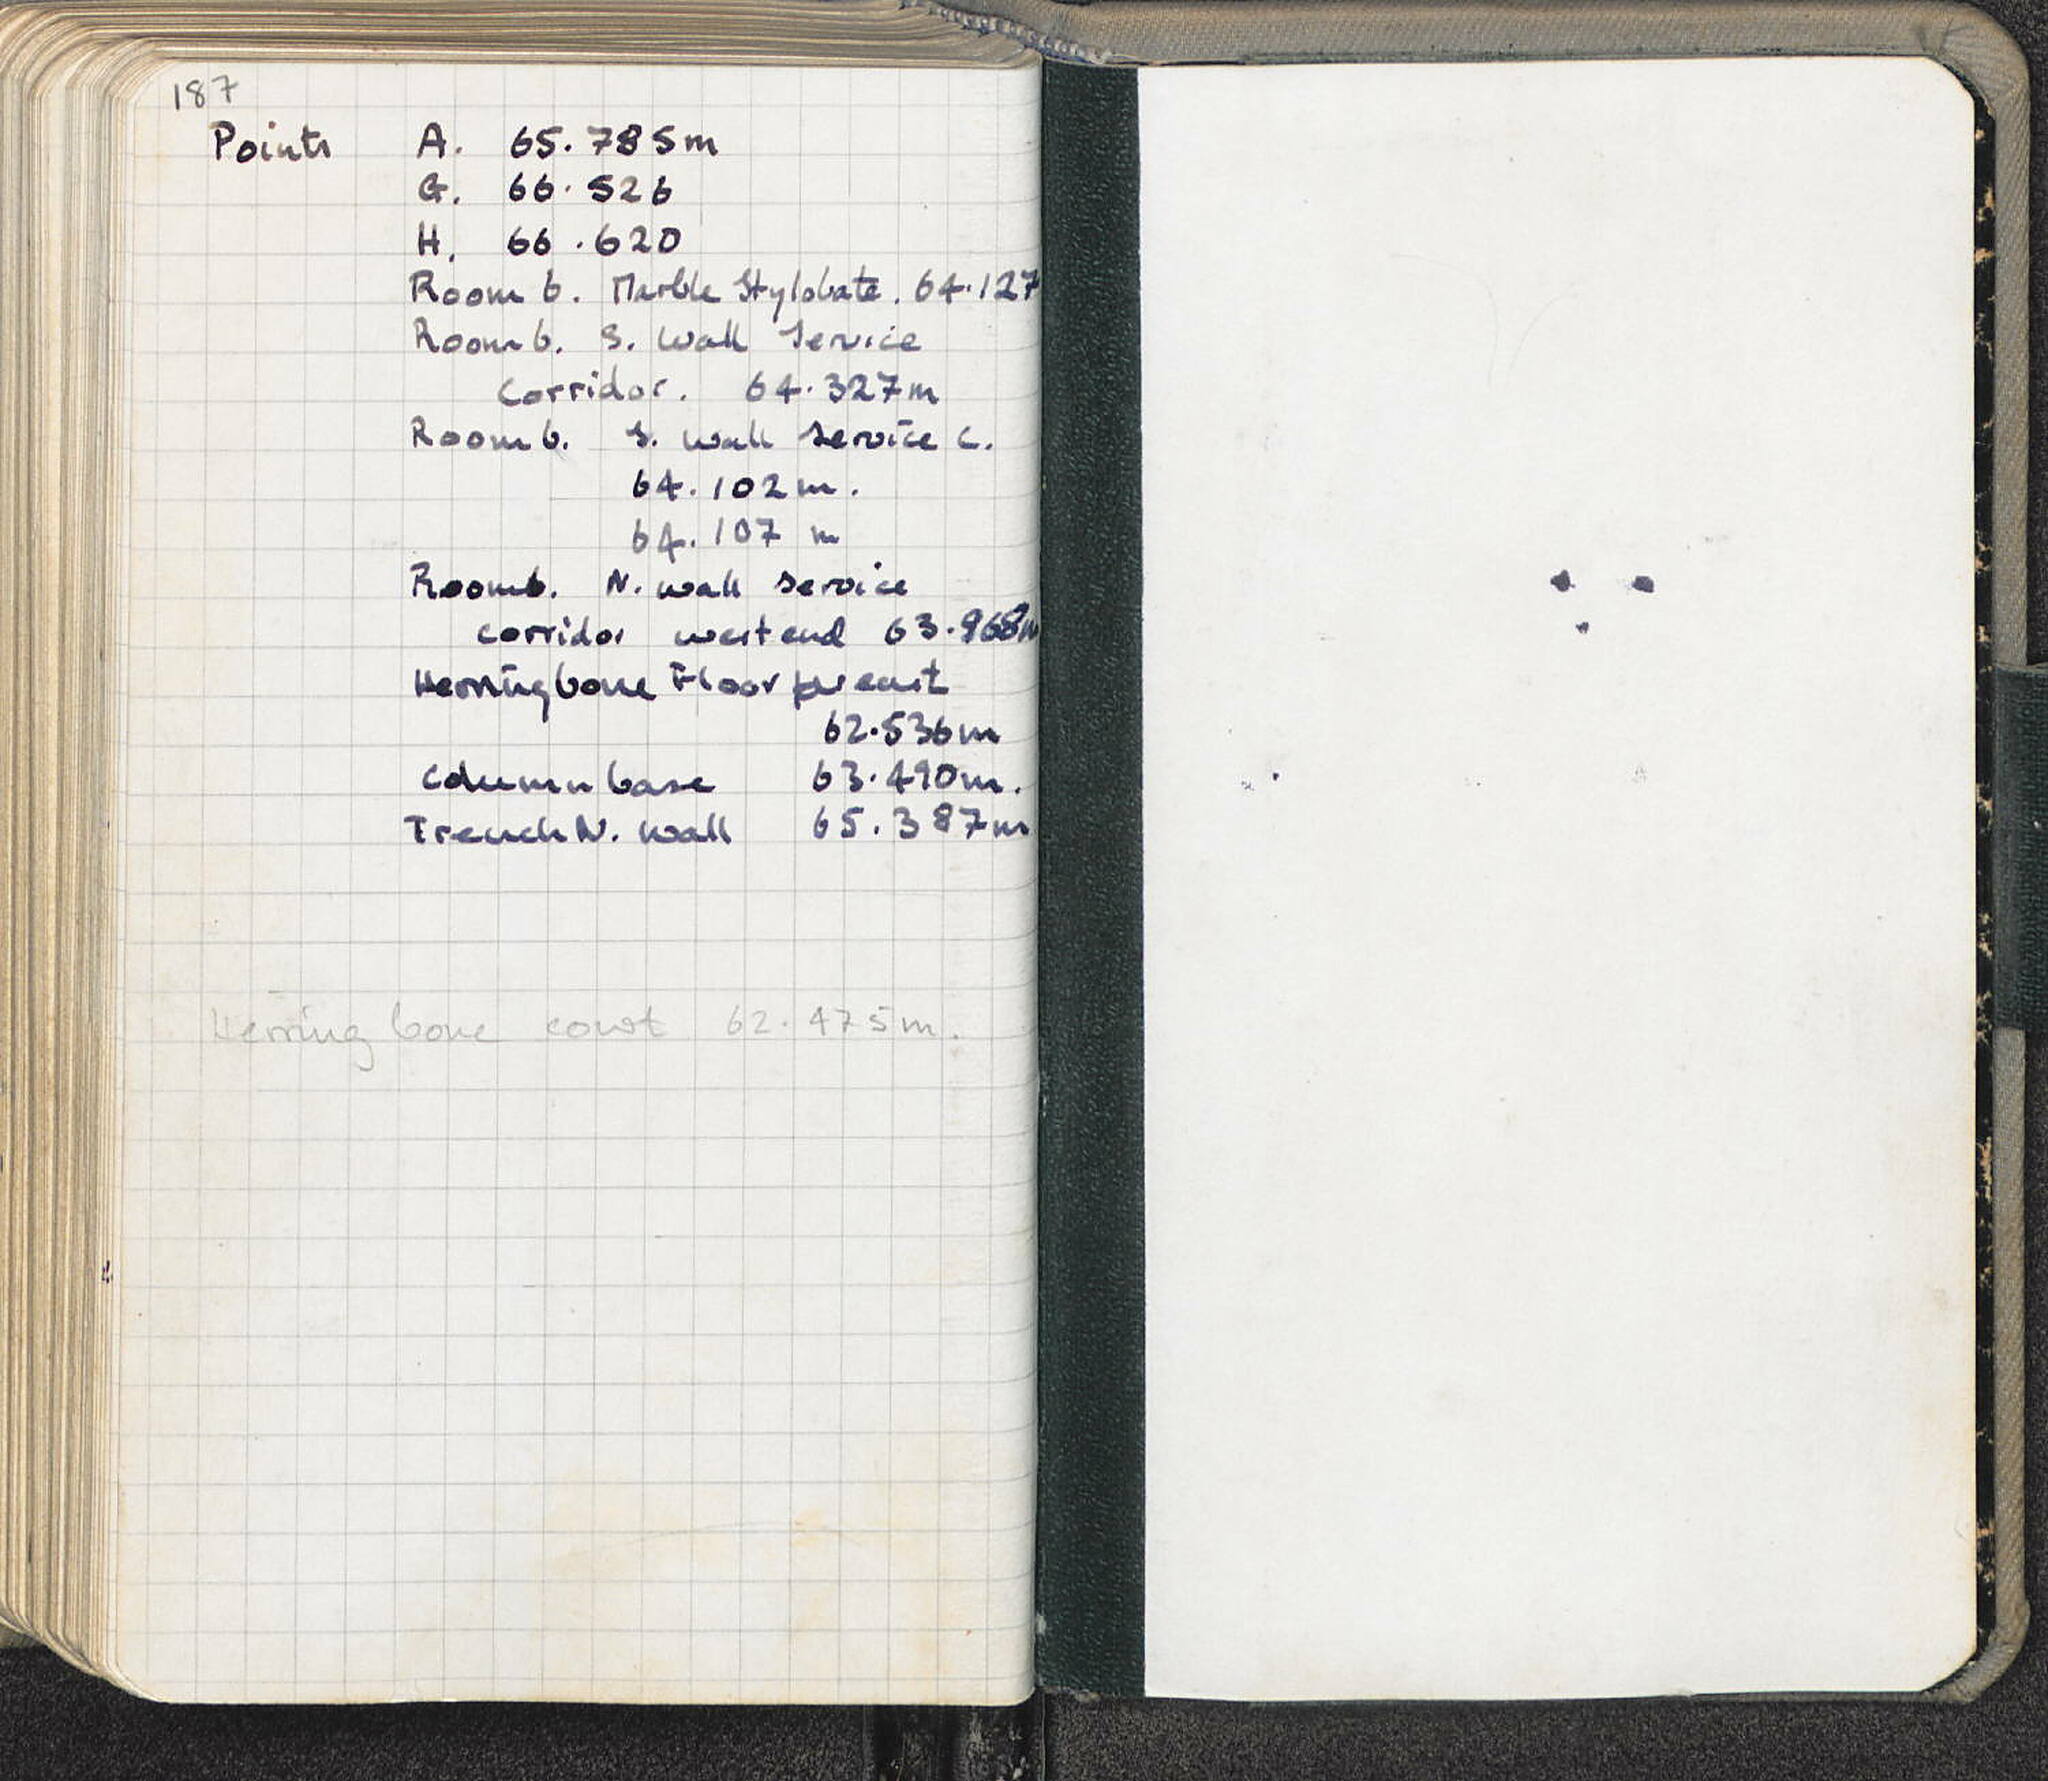 187
Points A. 65.785m
G. 66.526
H. 66.620
Room b. Marble Stylobate. 64.127
Room b. S. Wall Service
Corridor. 64.327m
Room b. S. wall Service C.
64.102m.
64.107 m
Room b. N. wall Service
corridor west end 63.968m
Herringbone Floor
62.536m
Column base 63.490m.
Trench N. Wall 65.387m
Herring bone court 62.475m.